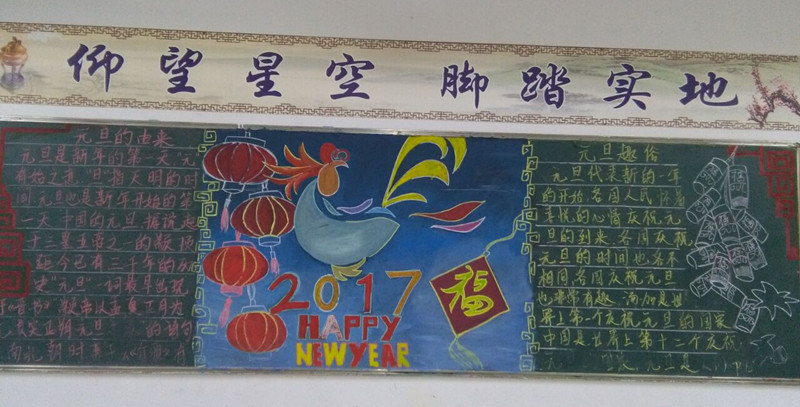 仰望星空 脚踏实地
元旦的由来
元旦是新年的第一天"元"
有始之意,"旦"指天明的时
间元旦也是新年开始的第
一天中国的元旦据说起
于三皇五帝之一的颛顼
距今已有三千年的历
史"元旦"一词最早出现
2017
HAPPY
NEWYEAR
福
元旦趣俗
元旦代表新的一年
的开始,各国人民
喜悦的心情庆祝元
旦的到来,各国庆祝
元旦的时间也各不
相同各国庆祝元旦
也非常有趣,汤加是世
界上第一个庆祝元旦的国家
中国是世界上第十二个庆祝